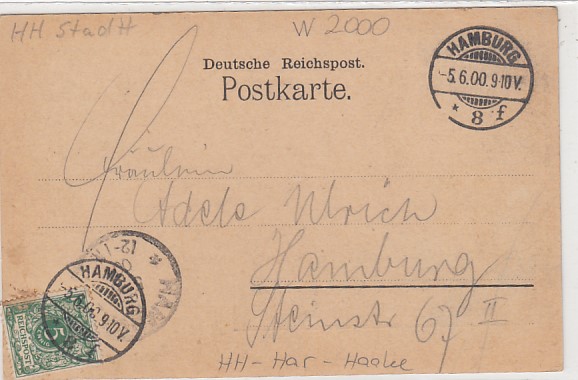 HH Stadt
W 2000
Deutsche Reichspost.
Postkarte.
HAMBURG
-5.6.00.9-10V.
* 8 f
Fräulein
Adele Ulrich
Hamburg
Steinstr 67 II
HH-Har-Haake
12-1
HAMBURG
-5.6.00.9-10V.
* 8 f
5
REICHSPOST